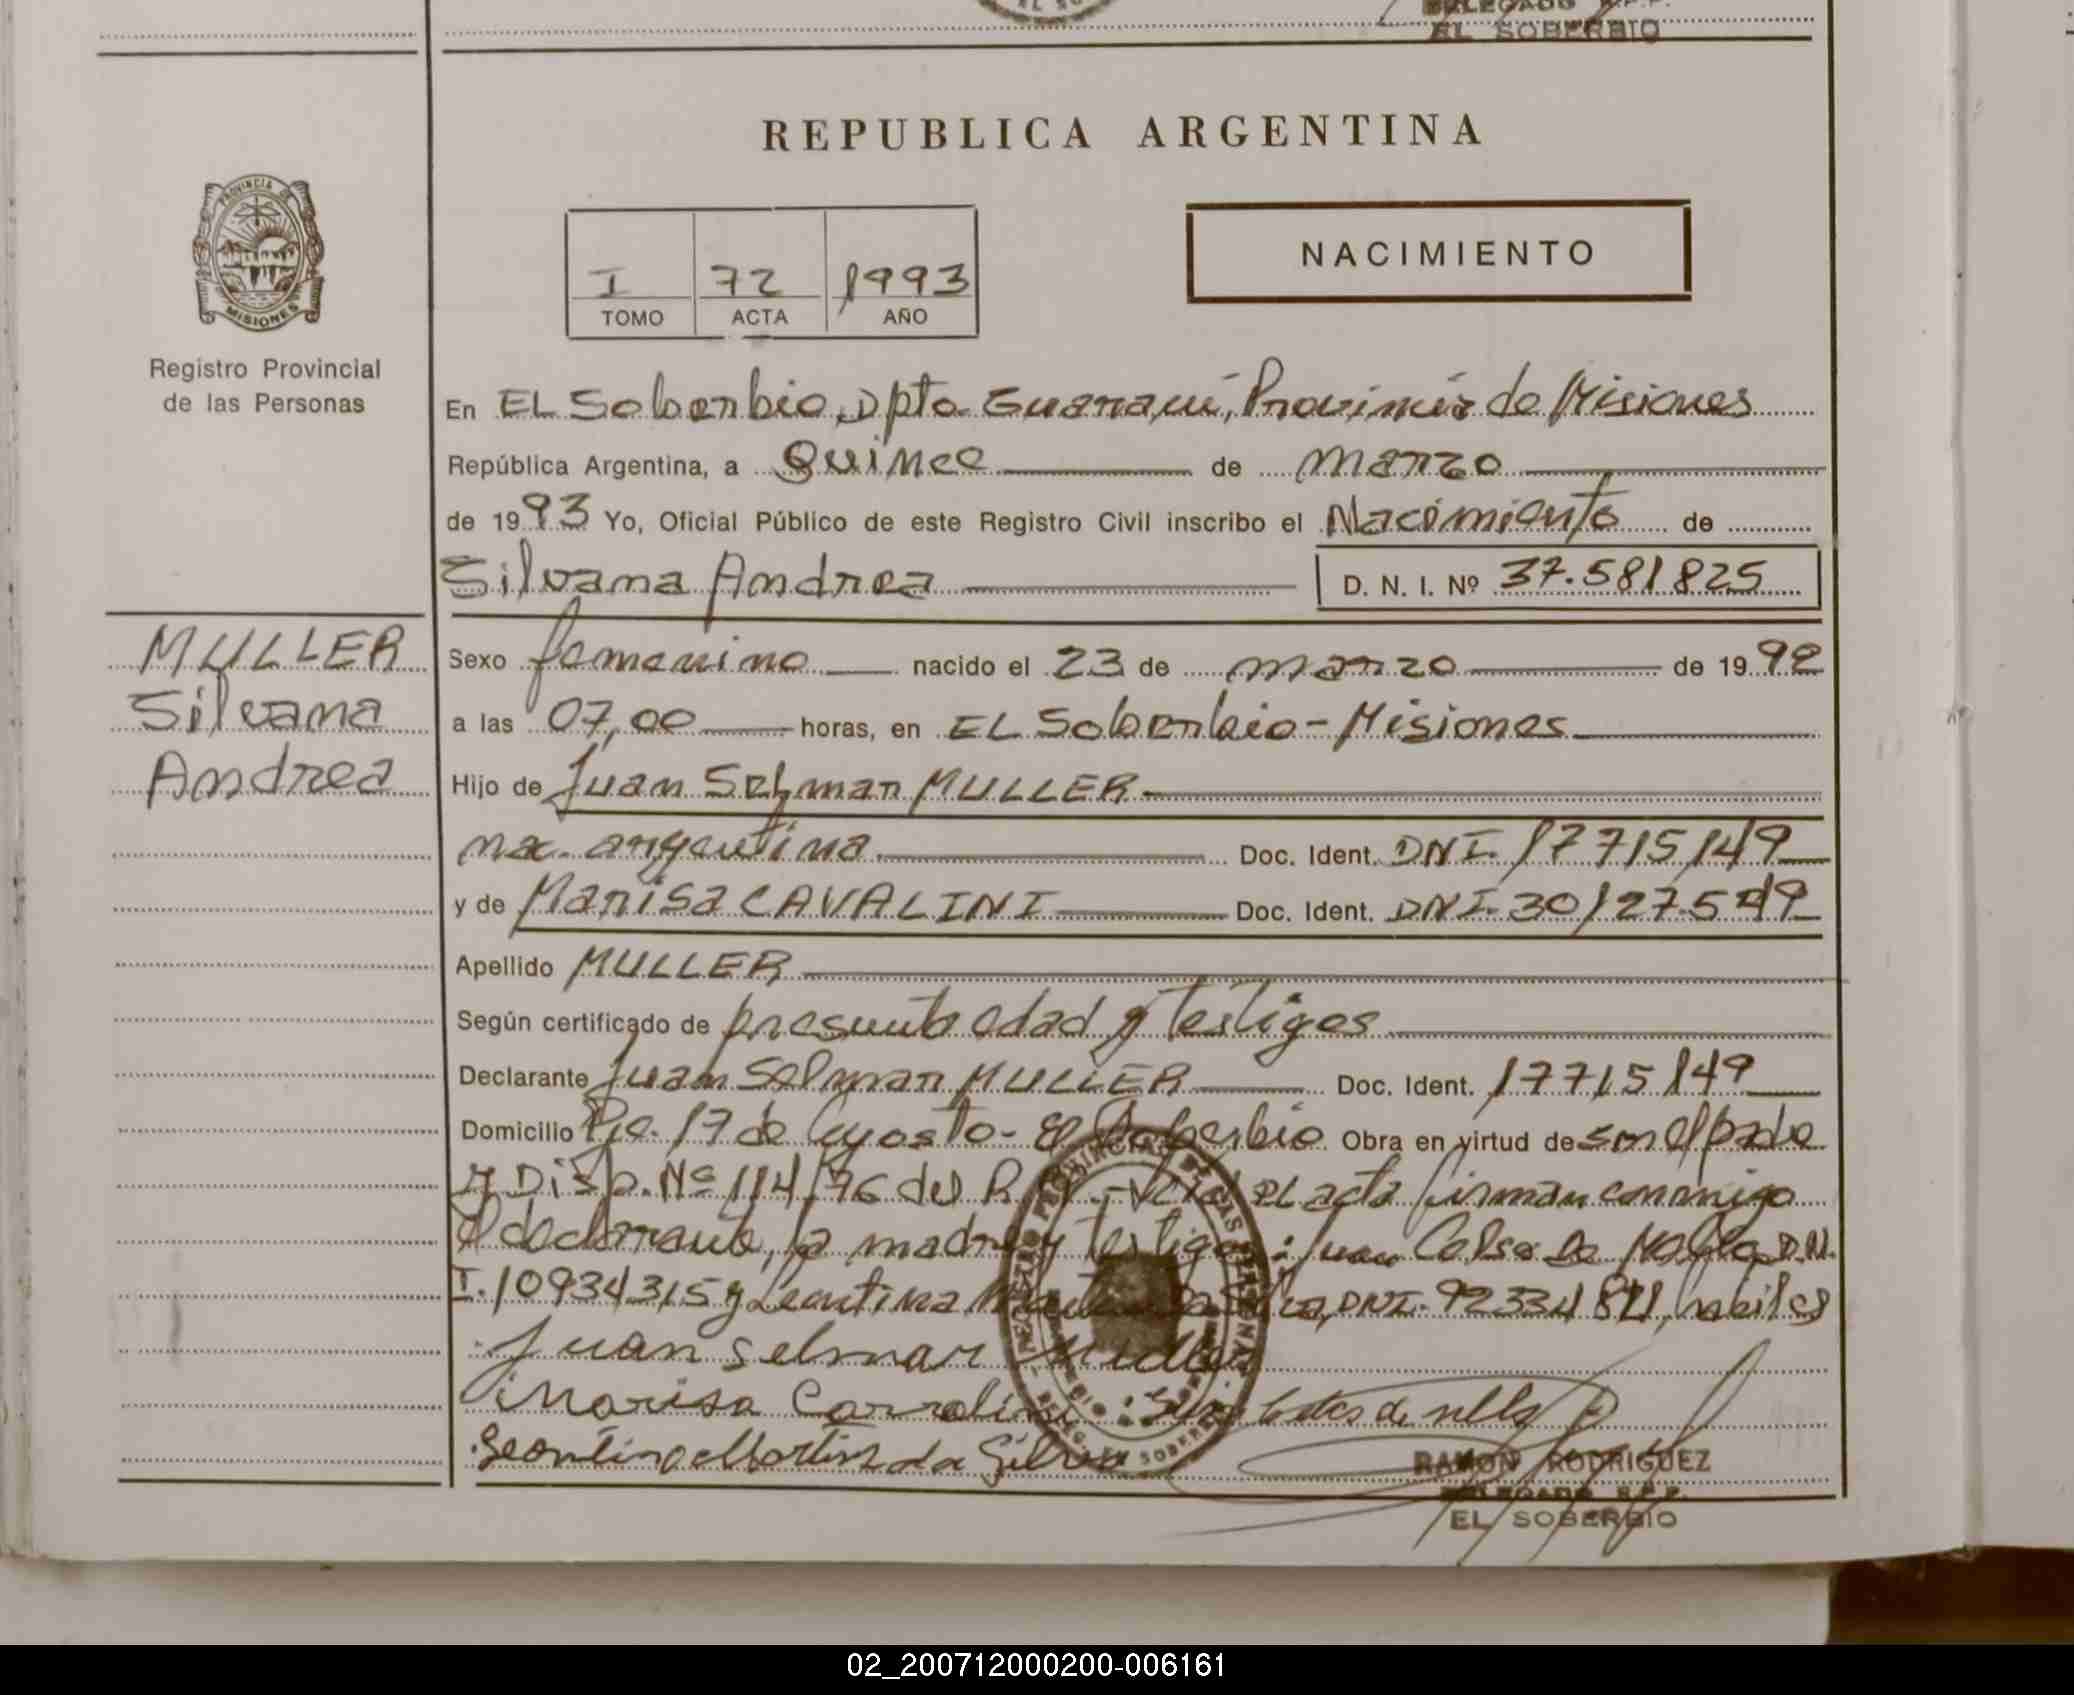 EL SOBERBIO
REPUBLICA ARGENTINA
PROVINCIA DE
MISIONES
Registro Provincial
de las Personas
I 72 1993
TOMO ACTA AÑO
NACIMIENTO
En EL Soberbio, Dpto Guaraní, Provincia de Misiones
República Argentina, a Quince de marzo
de 1993 Yo, Oficial Público de este Registro Civil inscribo el Nacimiento de
Silvana Andrea D. N. I. Nº 37.581825
MULLER
Silvana
Andrea
Sexo femenino nacido el 23 de marzo de 1992
a las 07,00 horas, en EL Soberbio - Misiones
Hijo de Juan Selmar MULLER
nac. argentina Doc. Ident. DNI. 17715149
y de Marisa CAVALINI Doc. Ident. DNI. 30127.549
Apellido MULLER
Según certificado de presunta edad y testigos
Declarante Juan Selmar MULLER Doc. Ident. 17715149
Domicilio Pje. 17 de Agosto - El Soberbio Obra en virtud de ser el padre
y Disp. Nº 114/76 del R. el acta firman conmigo
el declarante, la madre y testigos: Juan Celso de D.N.
I. 10934315 y Leontina da Silva, DNI.
Juan Selmar Muller
Marisa
Leontina Martins da Silva
RAMON RODRIGUEZ
DELEGADO R.P.P.
EL SOBERBIO
02_200712000200-006161